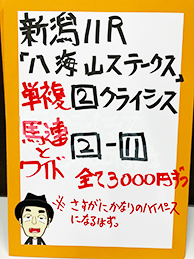 新潟11R
「八海山ステークス」
単複②クライシス
馬連
と
ワイド
②-⑪
全て3000円ずつ
※さすがにかなりのハイペース
になるはず。